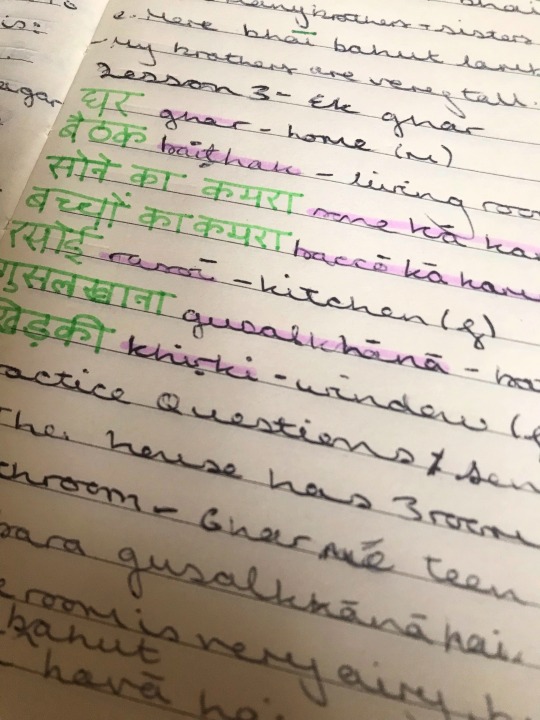 many brothers + sisters
e. Mere bhāī bahut lambe
- My brothers are very tall.
Lesson 3 - Ek ghar
घर ghar - home (m)
बैठक baithak - living room
सोने का कमरा sone kā ka
बच्चों का कमरा baccō kā kam
रसोई rasoī - kitchen (f)
गुसलखाना gusalkhānā - ba
खिड़की khiṛki - window (f
actice Questions / sen
The house has 3 room
throom - Ghar mē teen
bara gusalkhānā hai.
e room is very airy
bahut
- havā